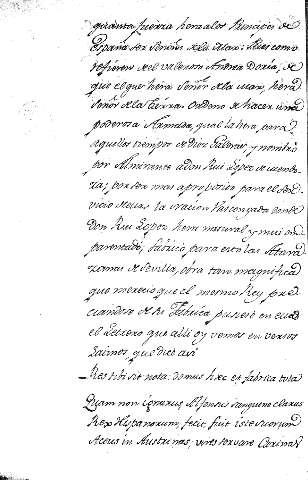 quanta fuerza hera a los Principes de
España ser Señores de la Mar; Pues como
refieren de el valeroso Andrea Doria, de
que el que hera Señor de la mar, hera
Señor de la tierra. Ordeno de hacer una
poderosa Armada, qual la hera para
aquellos tiempos de diez Galeras, y nombró
por Almirante a Don Rui Lopez de Mendo
za, por ser mas aproposito para el ser
vicio de la nacion Vascongada donde
Don Rui Lopez hera natural y mui em
parentado, fabricó para esto las Atara
zanas de Sevilla, obra tan magnifica
que merecio que el mesmo Rey pre
ciandose de su Fabrica pusiese en ella
el letrero que alli oy vemos en versos
Latinos, que dice asi
Res tibi sit nota domus hæc et fabrica tota
Quam non ignarus, Alfonsus sanguine clarus
Rex Hispanorum, fecit, fuit iste suorum
Actus in Austrinas, vires servare Carinas